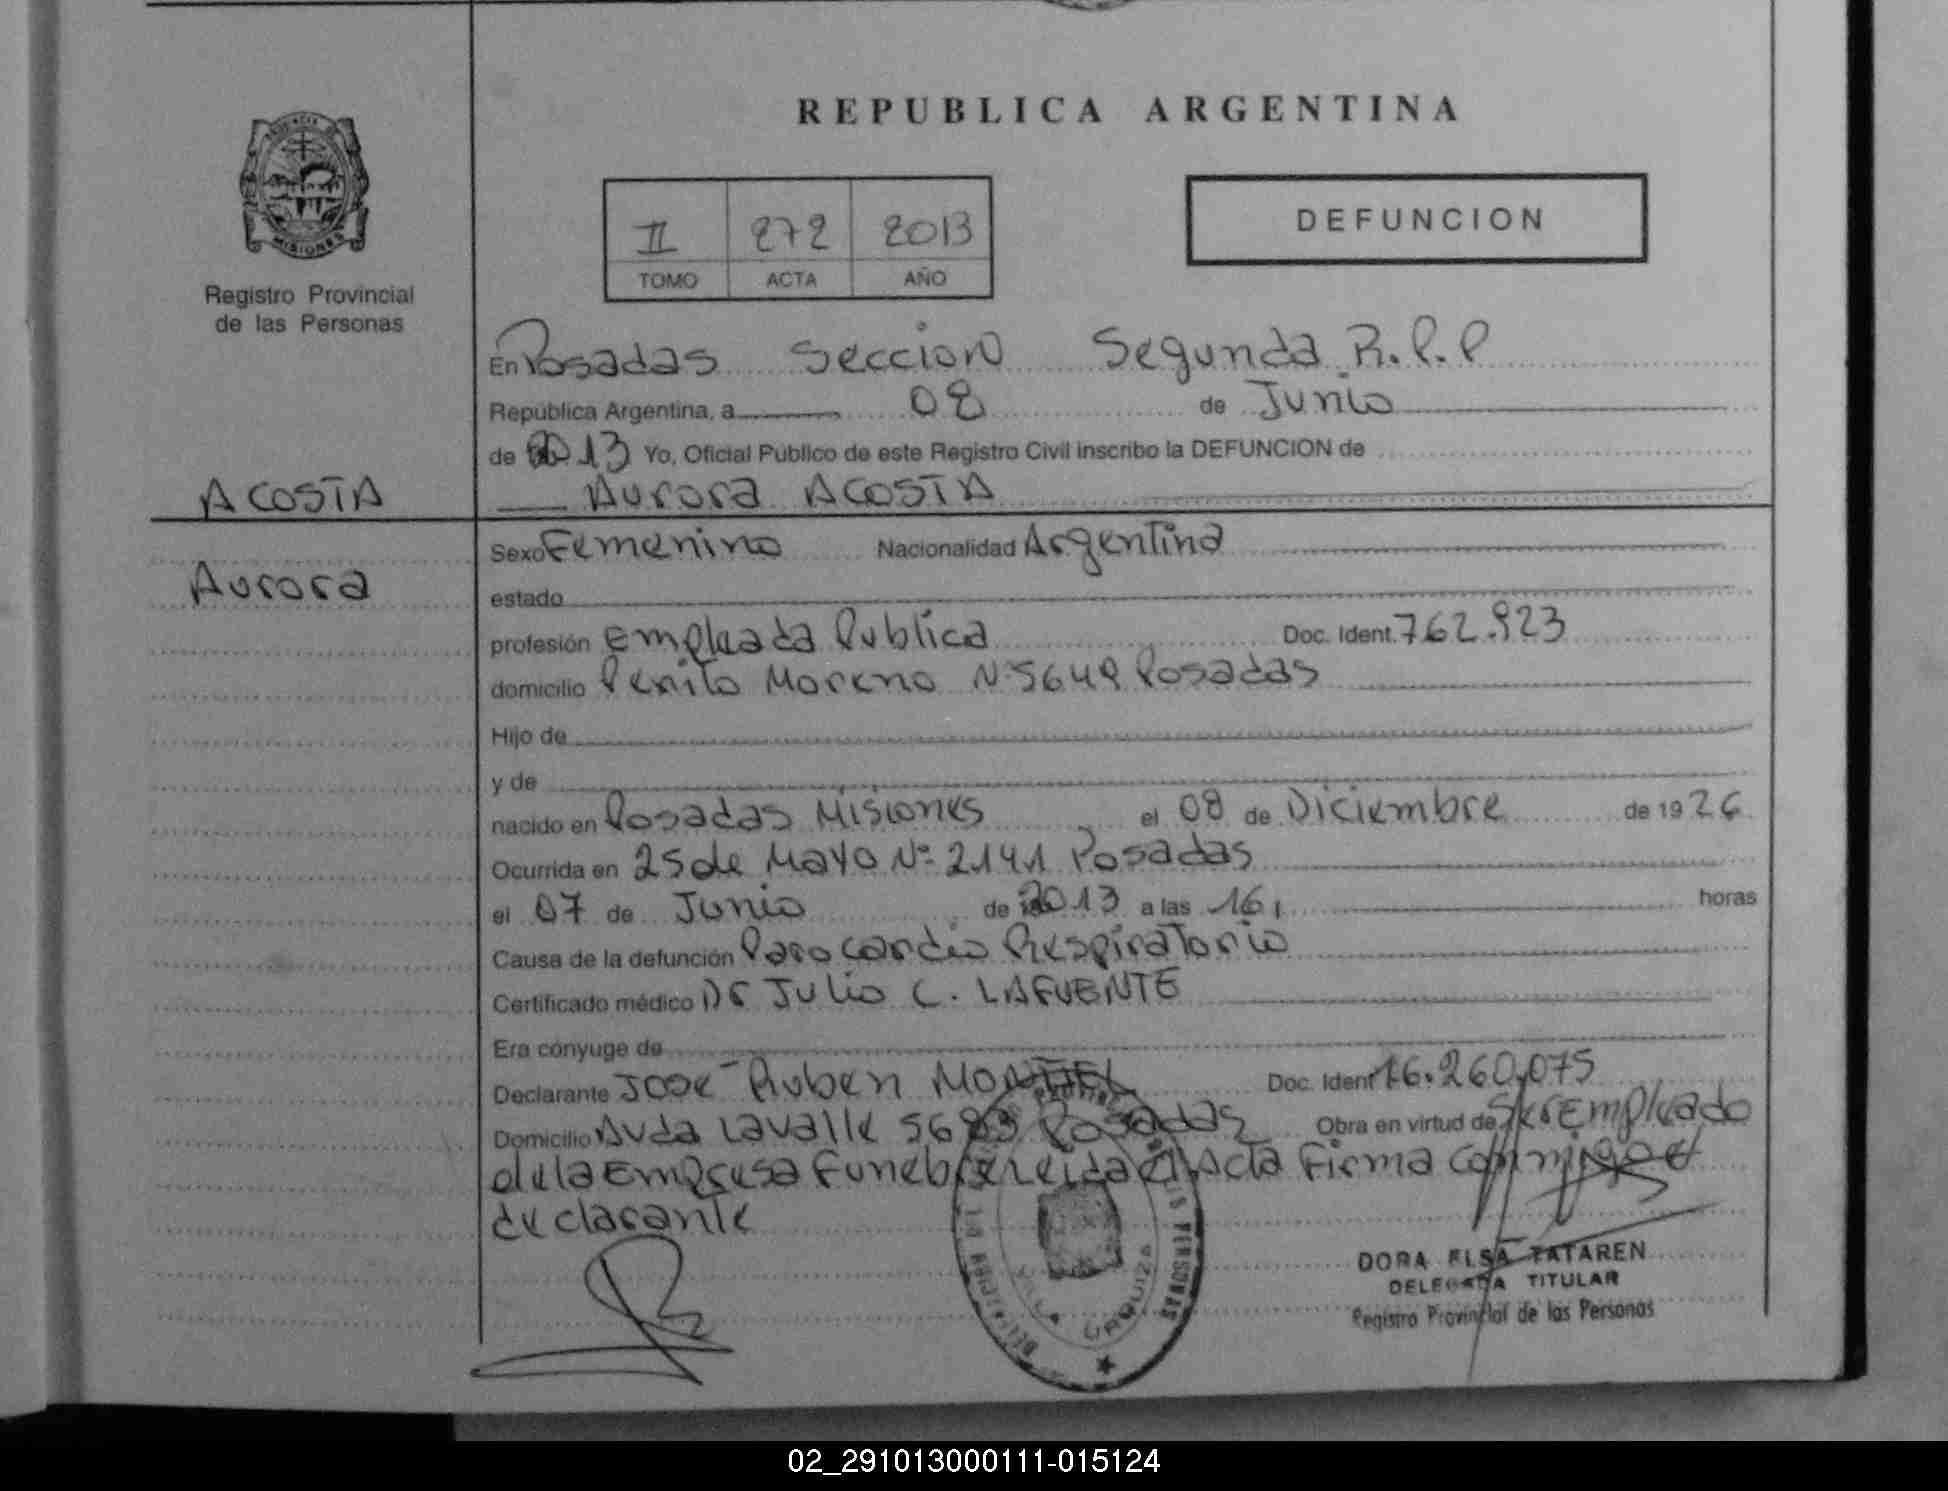 REPUBLICA ARGENTINA
PROVINCIA DE
MISIONES
Registro Provincial
de las Personas
II 272 2013
TOMO ACTA AÑO
DEFUNCION
En Posadas Seccion Segunda R.P.P
República Argentina, a 08 de Junio
de 2013 Yo, Oficial Público de este Registro Civil inscribo la DEFUNCION de
ACOSTA
Aurora ACOSTA
Aurora
Sexo Femenino Nacionalidad Argentina
estado
profesión Empleada Publica Doc. Ident. 762.923
domicilio Perito Moreno Nº 5649 Posadas
Hijo de
y de
nacido en Posadas Misiones el 08 de Diciembre de 1926
Ocurrida en 25 de Mayo Nº 2141 Posadas
el 07 de Junio de 2013 a las 16, horas
Causa de la defunción Paro cardio Respiratorio
Certificado médico Dr Julio C. LAFUENTE
Era cónyuge de
Declarante Jose Ruben MONTIEL Doc. Ident 16.260.075
Domicilio Avda Lavalle 5683 Posadas Obra en virtud de Ser Empleado
de la Empresa Funebre Leida el Acta Firma conmigo el
declarante
DELEGACION DE LAS PERSONAS
VILLA URQUIZA
DORA ELSA TATAREN
DELEGADA TITULAR
Registro Provincial de las Personas
02_291013000111-015124